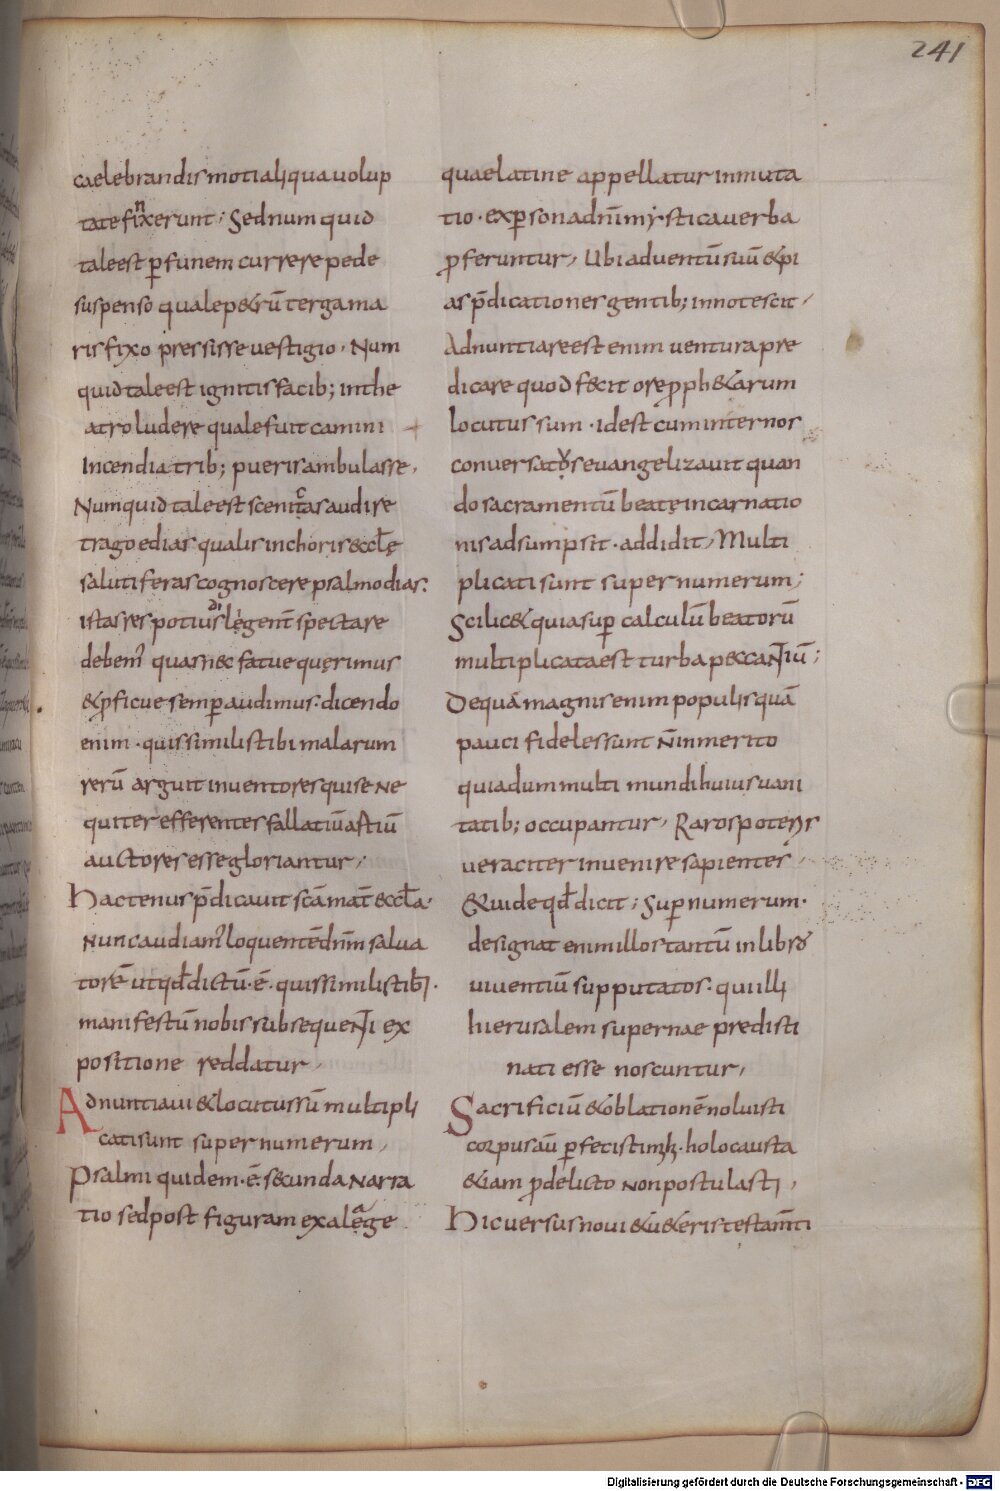 241
caelebrandis moti aliqua uolup
tate finxerunt; Sed num quid
tale est p̲ funem currere pede
suspenso quale p&rū terga ma
ris fixo pressisse uestigio. Num
quid tale est ignitis facib; in the
atro ludere quale fuit camini
Incendia trib; pueris ambulasse,
Numquid tale est scenicas audire
tragoedias qualis in choris eccl̄ę
salutiferas cognoscere psalmodias:
istas res potius legent̄ spectare
debem' quas nec fatue quęrimus
&p̲ficue semp̲ audimus: dicendo
enim. quis similis tibi malarum
rerū arguit inuentores qui se ne
quiter efferentes fallatiū astiū
auctores esse gloriantur,
Hactenus p̄dicauit scā mat̄ eccl̄a.
Nunc audiam' loquentē dn̄m salua
torē ut qđ dictū. ē. quis similis tibi.
manifestū nobis subsequenti ex
positione reddatur,
Adnuntiaui & locutus sū multipli
cati sunt super numerum,
Psalmi quidem. ē. secunda narra
tio sed post figuram exalęage
quae latine appellatur inmuta
tio. ex p̲son a dn̄i mystica uerba
p̲feruntur, Ubi aduentū suū & pi
as p̄dicationes gentib; innotescit,
Adnuntiare est enim uentura pre
dicare quod fecit ore p̲ph&arum
locutus sum. idest cum inter nos
conuersatus euangelizauit quan
do sacramentū beatę incarnatio
nis adsumpsit. addidit, Multi
plicati sunt super numerum;
Scilic& quia sup̲ calculū beatorū
multiplicata est turba peccantiū;
De quā magnis enim populis quā
pauci fideles sunt n̄ inmerito
quia dum multi mundi huius uani
tatib; occupantur, Raros poteris
ueraciter inuenire sapientes,
& uide qđ dicit; Sup̲ numerum.
designat enim illos tantū in libro
uiuentiū supputatos. qui illi
hierusalem supernae predisti
nati esse noscuntur,
Sacrificiū & oblationē noluisti
corpus aū p̲fecisti mihi. holocausta
&iam p̲ delicto non postulasti,
Hic uersus noui & u&eris testam̄ti
Digitalisierung gefördert durch die Deutsche Forschungsgemeinschaft - DFG